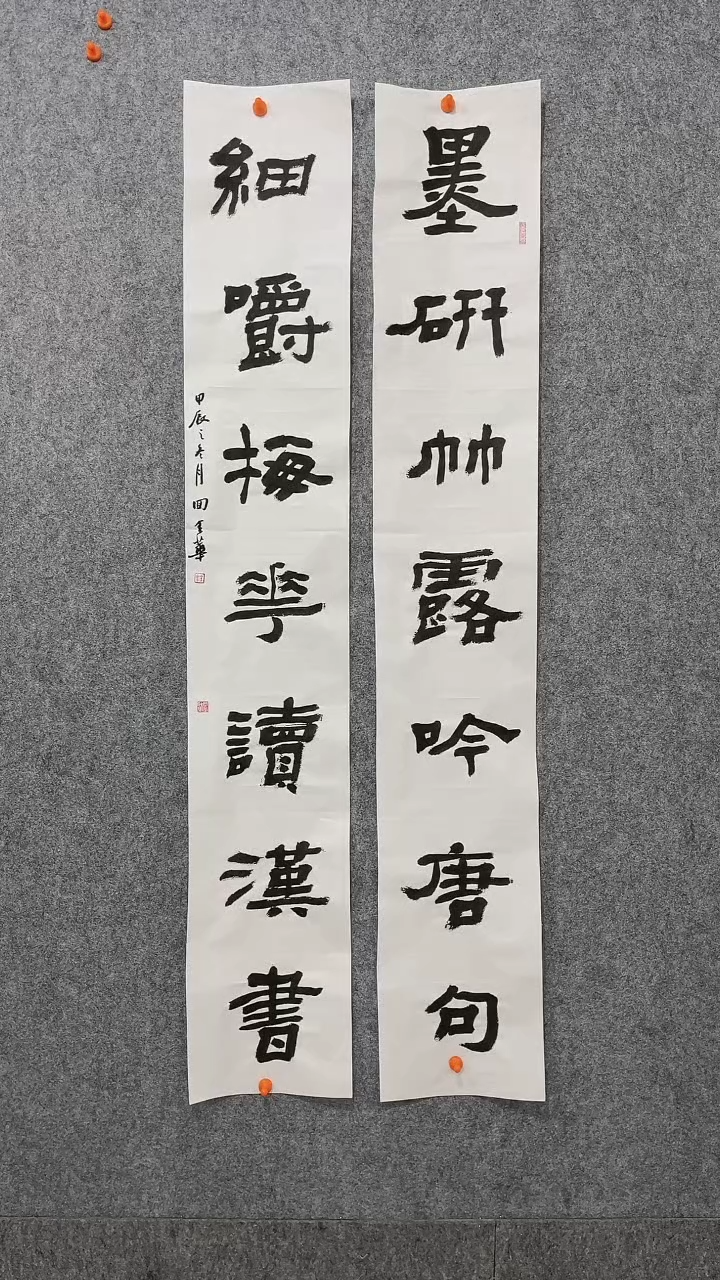 墨研竹露吟唐句
細嚼梅花讀漢書
甲辰之冬月 田玉華